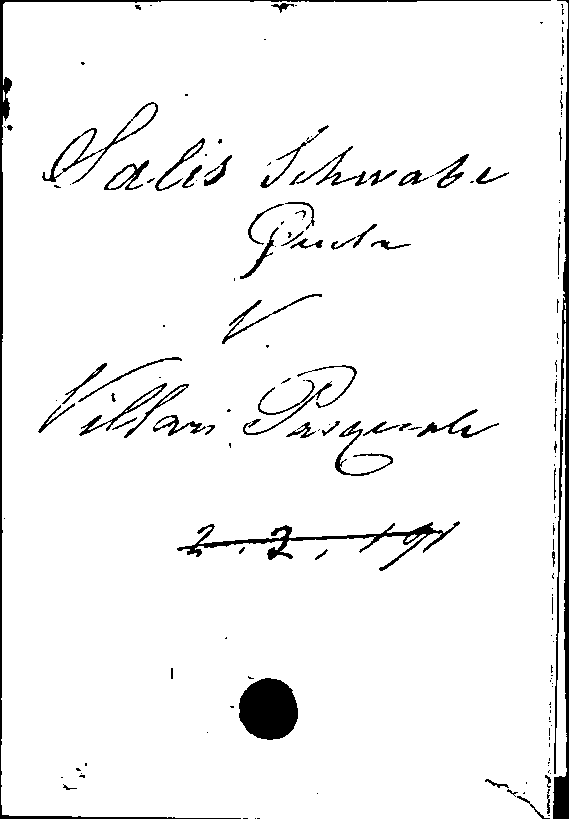 Salis Schwabe
V
Villari Pasquale
2. 2. 191